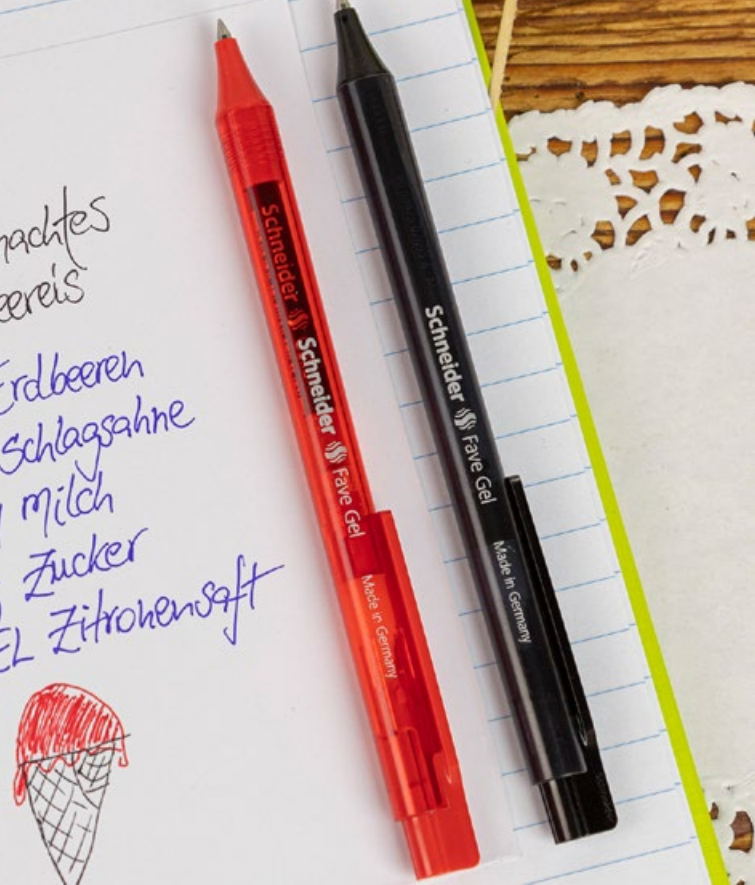 nachtes
eereis
Erdbeeren
Schlagsahne
Milch
Zucker
EL Zitronensaft
Schneider
Schneider Fave Gel
Made in Germany
Schneider Fave Gel
Made in Germany